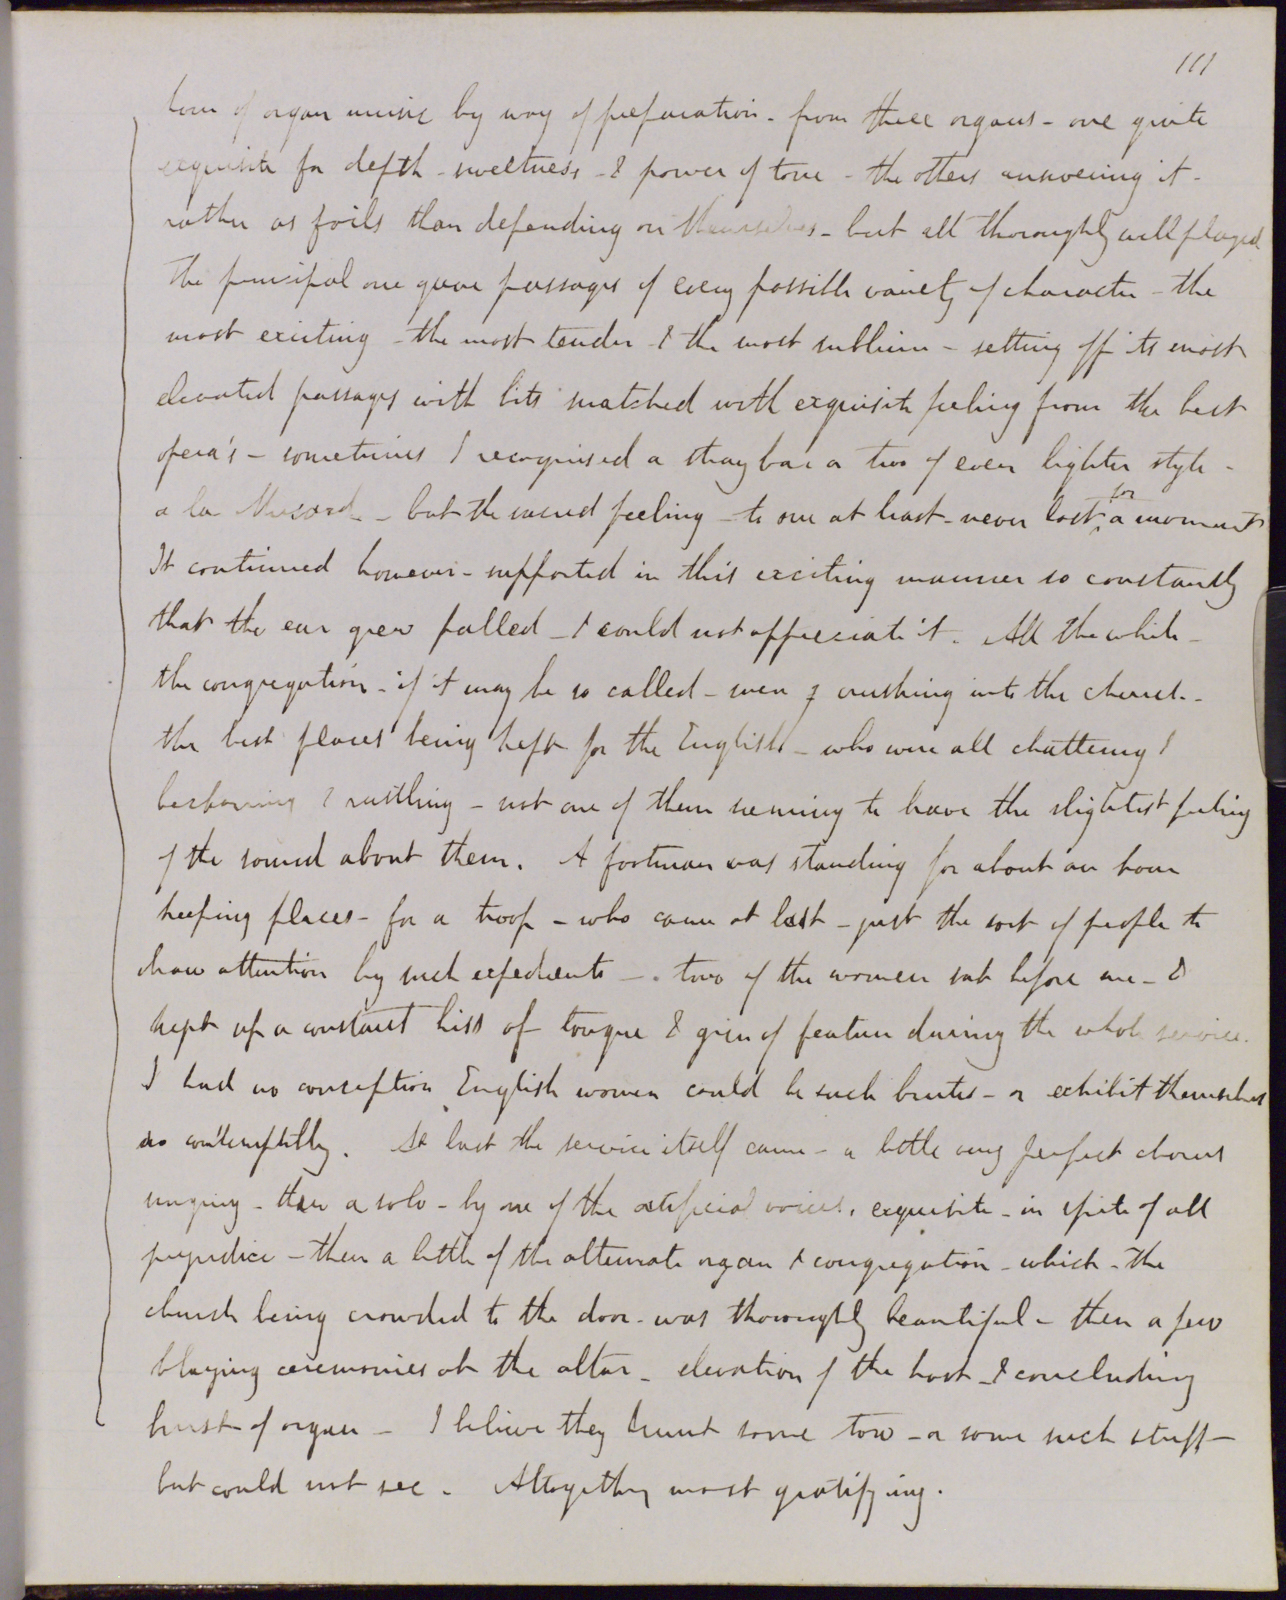 111
hour of organ music by way of preparation - from three organs - one quite
exquisite for depth - sweetness - & power of tone - the others answering it -
rather as foils than depending on themselves - but all thoroughly well played
The principal one gave passages of every possible variety of character - the
most exciting - the most tender - & the most sublime - setting off its most
elevated passages with bits snatched with exquisite feeling from the best
opera's - sometimes I recognised a stray bar or two of even lighter style -
a la Musard - but the sacred feeling - to me at least - never lost for a moment
It continued however - supported in this exciting manner so constantly
that the ear grew palled - & could not appreciate it. All the while -
the congregation - if it may be so called - were crushing into the church -
the best places being kept for the English - who were all chattering &
beckoning & rustling - not one of them seeming to have the slightest feeling
of the sound about them. A footman was standing for about an hour
keeping places - for a troop - who came at last - just the sort of people to
draw attention by such expedients - two of the women sat before me - &
kept up a constant hiss of tongue & grin of feature during the whole service.
I had no conception English women could be such brutes - or exhibit themselves
so contemptibly. At last the service itself came - a little very perfect chorus
singing - then a solo - by one of the artificial voices, exquisite - in spite of all
prejudice - then a little of the alternate organ & congregation - which - the
church being crowded to the door - was thoroughly beautiful - then a few
blazing ceremonies at the altar - elevation of the host - & concluding
burst of organ - I believe they burnt some tow - or some such stuff -
but could not see. Altogether most gratifying.